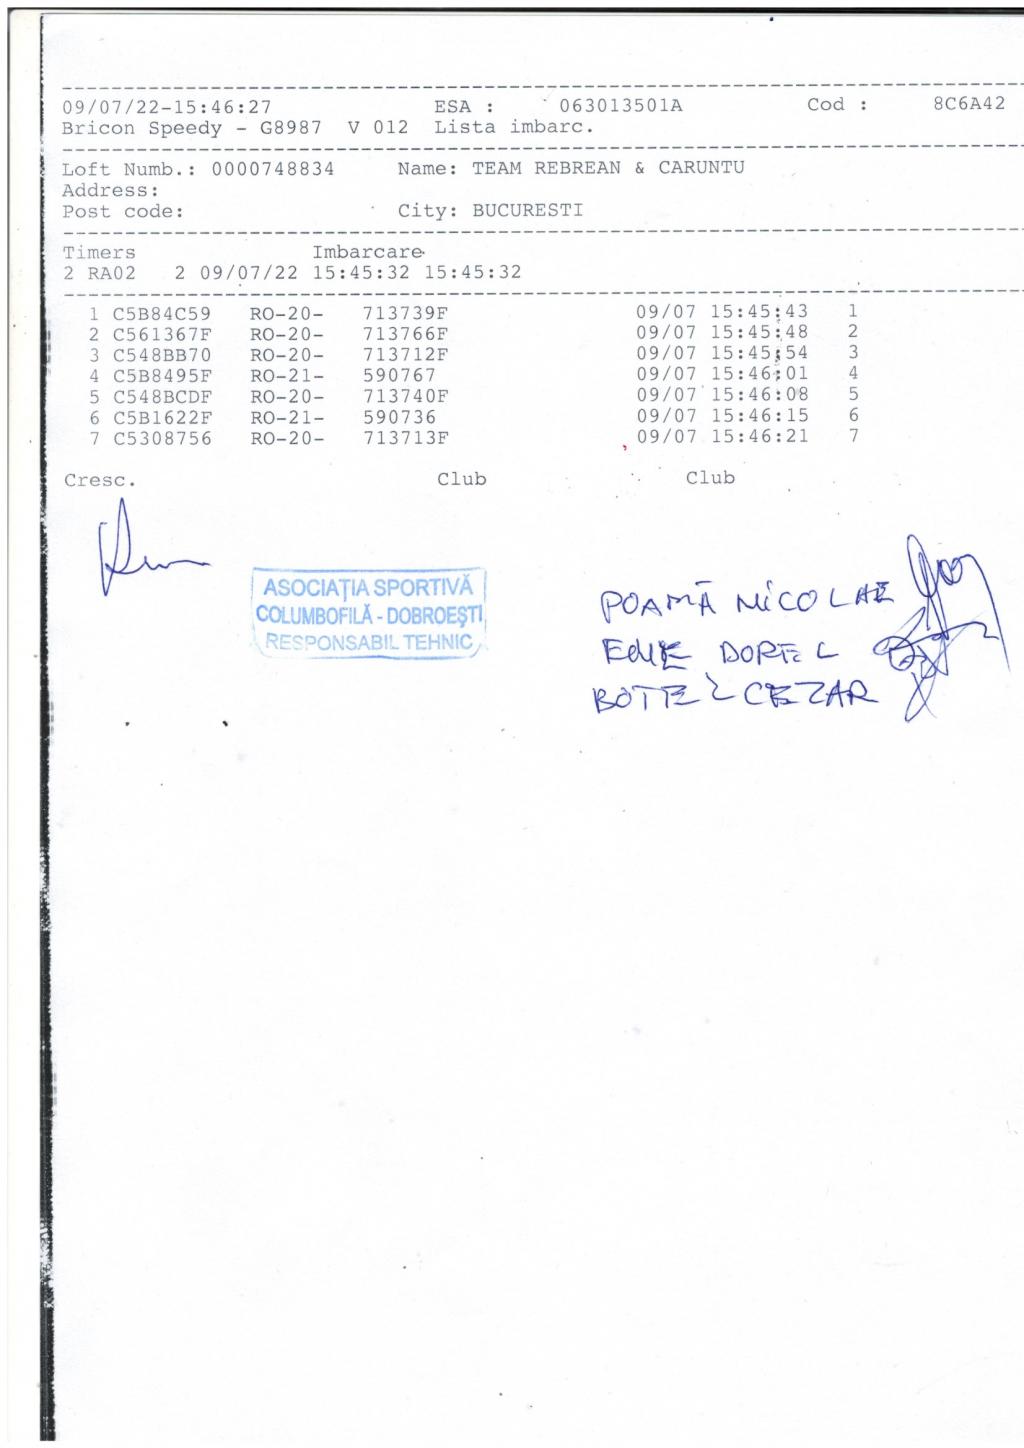 09/07/22-15:46:27 ESA : 063013501A Cod : 8C6A42
Bricon Speedy - G8987 V 012 Lista imbarc.
Loft Numb.: 0000748834 Name: TEAM REBREAN & CARUNTU
Address:
Post code: City: BUCURESTI
Timers Imbarcare
2 RA02 2 09/07/22 15:45:32 15:45:32
1 C5B84C59 RO-20- 713739F 09/07 15:45:43 1
2 C561367F RO-20- 713766F 09/07 15:45:48 2
3 C548BB70 RO-20- 713712F 09/07 15:45:54 3
4 C5B8495F RO-21- 590767 09/07 15:46:01 4
5 C548BCDF RO-20- 713740F 09/07 15:46:08 5
6 C5B1622F RO-21- 590736 09/07 15:46:15 6
7 C5308756 RO-20- 713713F 09/07 15:46:21 7
Cresc. Club Club
ASOCIAȚIA SPORTIVĂ
COLUMBOFILĂ - DOBROEȘTI
RESPONSABIL TEHNIC
POAMĂ NICOLAE
DOREL
BOTEZ CEZAR